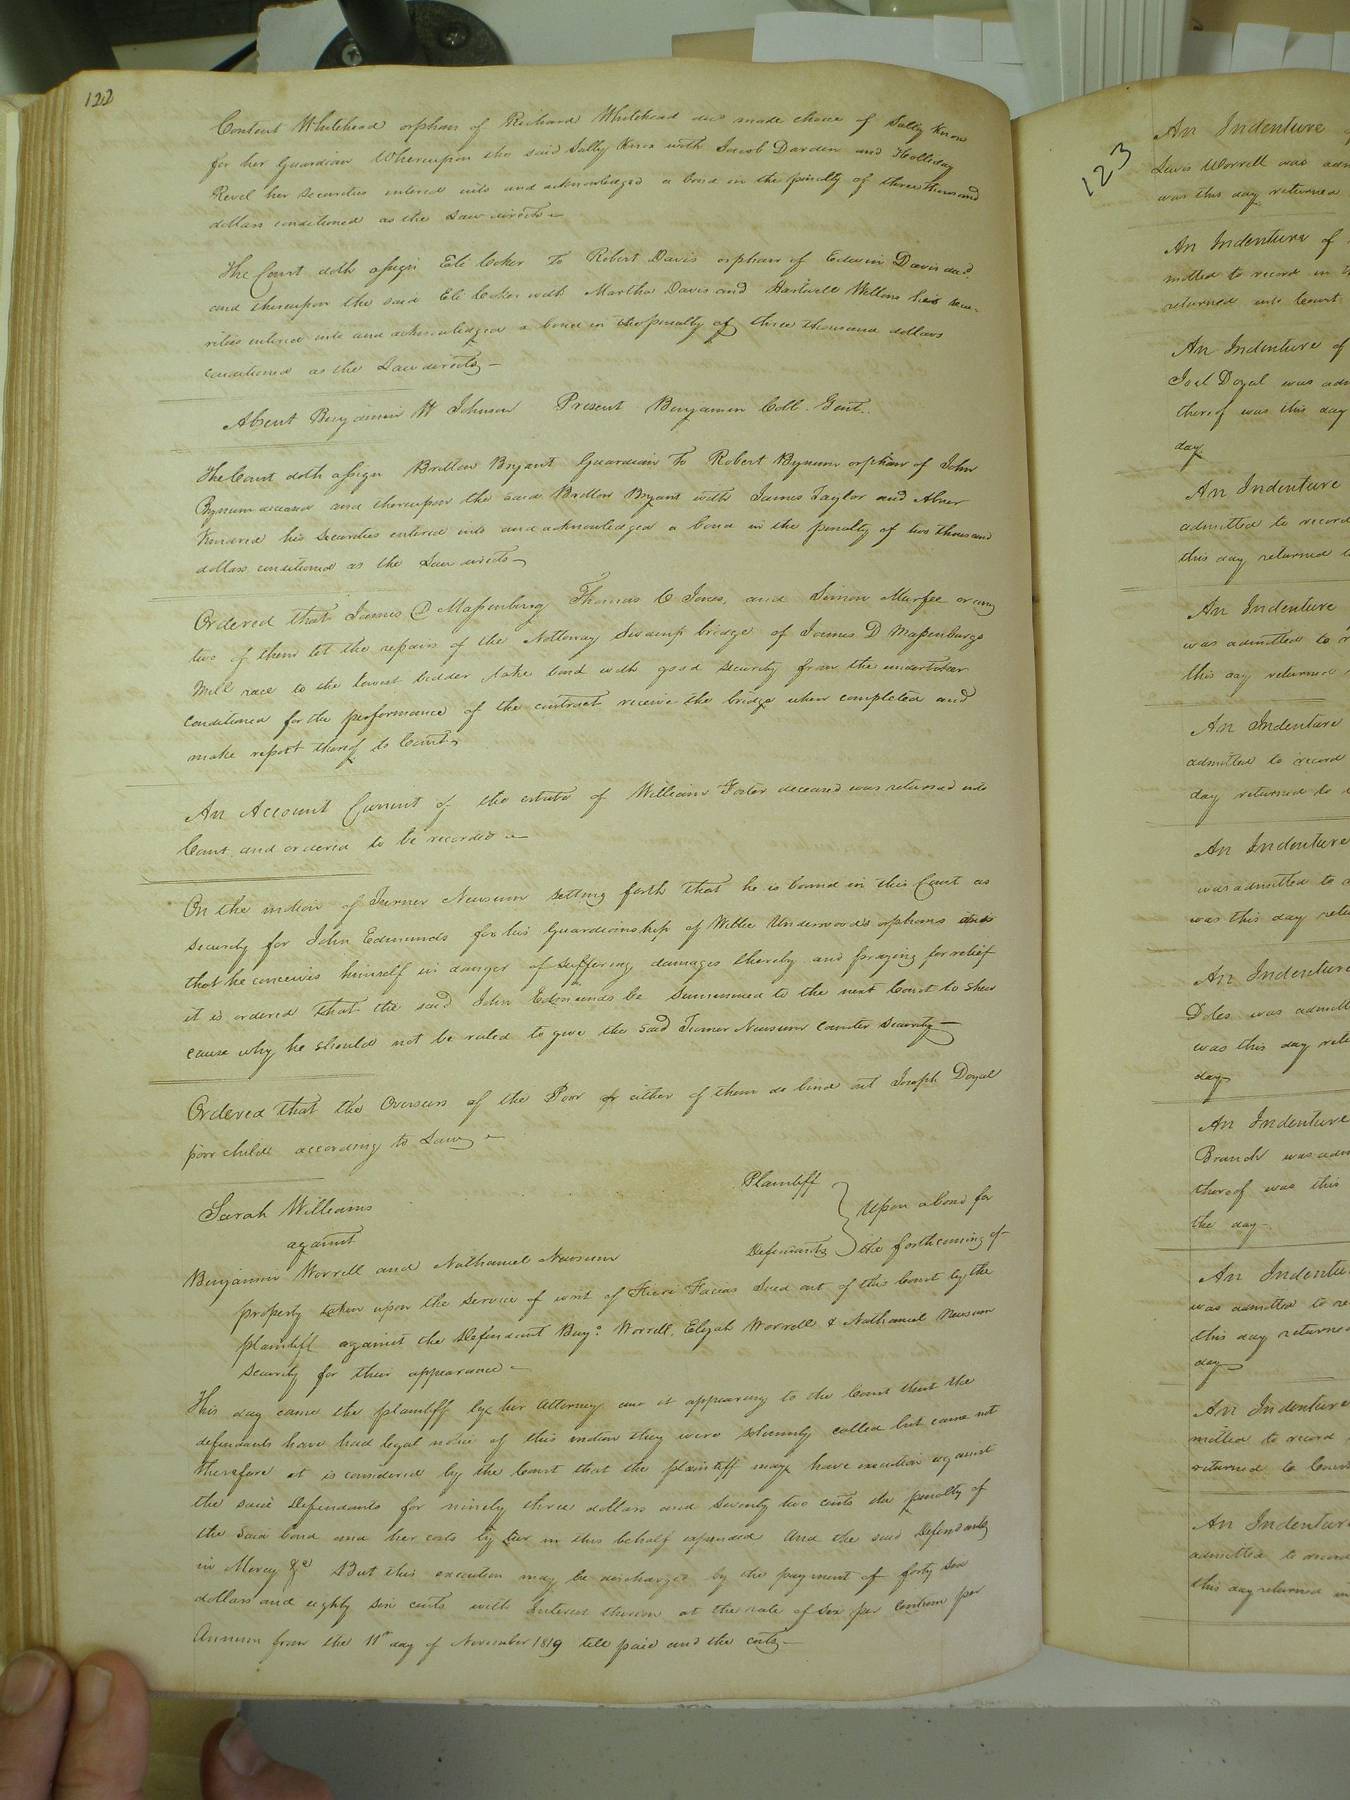 122
Content Whitehead orphan of Richard Whitehead decd made choice of Sally Knox
for her Guardian Whereupon the said Sally Knox with Jacob Darden and Holliday
Revel her securities entered into and acknowledged a bond in the penalty of three thousand
dollars conditioned as the Law directs
The Court doth assign Eli Coker To Robert Davis orphan of Edwin Davis decd
and thereupon the said Eli Coker with Martha Davis and Hartwell Wellons his secu-
rities entered into and acknowledged a bond in the penalty of three thousand dollars
conditioned as the Law directs
Absent Benjamin W Johnson Present Benjamin Cobb Gent.
The Court doth assign Britton Bryant Guardian To Robert Bynum orphan of John
Bynum deceased and thereupon the said Britton Bryant with James Taylor and Abner
Kindred his securities entered into and acknowledged a bond in the penalty of two thousand
dollars conditioned as the Law directs
Ordered that James D Massenburg Thomas C Jones, and Simon Murfee or any
two of them let the repairs of the Nottoway Swamp bridge of James D Massenburgs
Mill race to the lowest bidder take bond with good security from the undertaker
conditioned for the performance of the contract receive the bridge when completed and
make report thereof to Court
An Account Current of the estate of William Foster deceased was returned into
Court and ordered to be recorded
On the motion of Turner Newsum setting forth that he is bound in this Court as
security for John Edmunds for his Guardianship of Willie Underwood's orphans and
that he conceives himself in danger of suffering damages thereby and praying for relief
it is ordered that the said John Edmunds be Summoned to the next Court to shew
cause why he should not be ruled to give the said Turner Newsum counter security
Ordered that the Overseers of the Poor or either of them do bind out Joseph Doyal
poor child according to Law
Sarah Williams Plaintiff
against Upon a bond for
Benjamin Worrell and Nathaniel Newsum Defendants the forthcoming of
property taken upon the service of writ of Fieri Facias Sued out of this Court by the
plaintiff against the Defendant Benj.n Worrell, Elijah Worrell & Nathaniel Newsum
security for their appearance
This day came the plaintiff by her Attorney and it appearing to the Court that the
defendants have had legal notice of this motion they were solemnly called but came not
Therefore it is considered by the Court that the plaintiff may have execution against
the said Defendants for ninety three dollars and seventy two cents the penalty of
the said bond and her costs by her in this behalf expended And the said Defendants
in Mercy &c But this execution may be discharged by the payment of forty six
dollars and eighty six cents with Interest thereon at the rate of six per Centum per
Annum from the 11th day of November 1819 till paid and the costs
123
An Indenture
Lewis Worrell was adm
was this day returned
An Indenture of
mitted to record in
returned into Court
An Indenture of
Joel Doyal was adm
thereof was this day
day
An Indenture
admitted to record
this day returned
An Indenture
was admitted to
this day returned
An Indenture
admitted to record
day returned to
An Indenture
was admitted to
was this day retu
An Indenture
Doles was admitt
was this day retu
day
An Indenture
Branch was adm
thereof was this
the day
An Indentu
was admitted to re
this day returned
day
An Indenture
mitted to record
returned to Cour
An Indenture
admitted to record
this day returned in